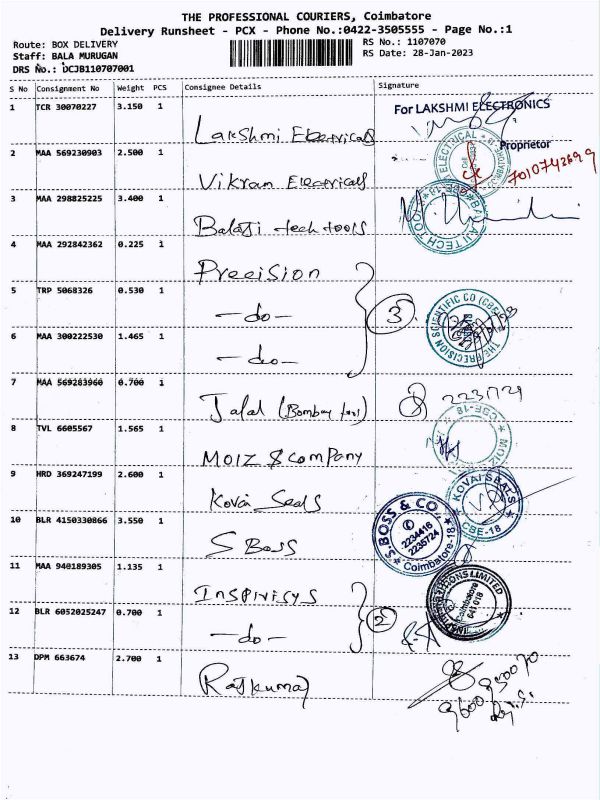 THE PROFESSIONAL COURIERS, Coimbatore
Delivery Runsheet - PCX - Phone No.:0422-3505555 - Page No.:1
Route: BOX DELIVERY RS No.: 1107070
Staff: BALA MURUGAN RS Date: 28-Jan-2023
DRS No.: DCJB110707001
S No Consignment No Weight PCS Consignee Details Signature
1 TCR 30070227 3.150 1 Lakshmi Electricals For LAKSHMI ELECTRONICS
Proprietor
2 MAA 569230903 2.500 1 Vikram Electricals 7010742699
3 MAA 298825225 3.400 1 Balaji tech tools BALAJI TECH TOOLS
4 MAA 292842362 0.225 1 Precision
5 TRP 5068326 0.530 1 -do- 3 THE PRECISION SCIENTIFIC CO (CBE)
6 MAA 300222530 1.465 1 -do-
7 MAA 569283960 0.700 1 Jalal (Bombay tool) 2231729
8 TVL 6605567 1.565 1 MOIZ & company MOIZ CBE-18
9 HRD 369247199 2.600 1 Kovai Seals KOVAI SEALS CBE-18
10 BLR 4150330866 3.550 1 S Boss S.BOSS & CO. 2234416 2235724 Coimbatore-18
11 MAA 940189305 1.135 1 Inspirisys LIMITED Coimbatore 641 018
12 BLR 6052025247 0.700 1 -do- 2
13 DPM 663674 2.700 1 Rajkumar